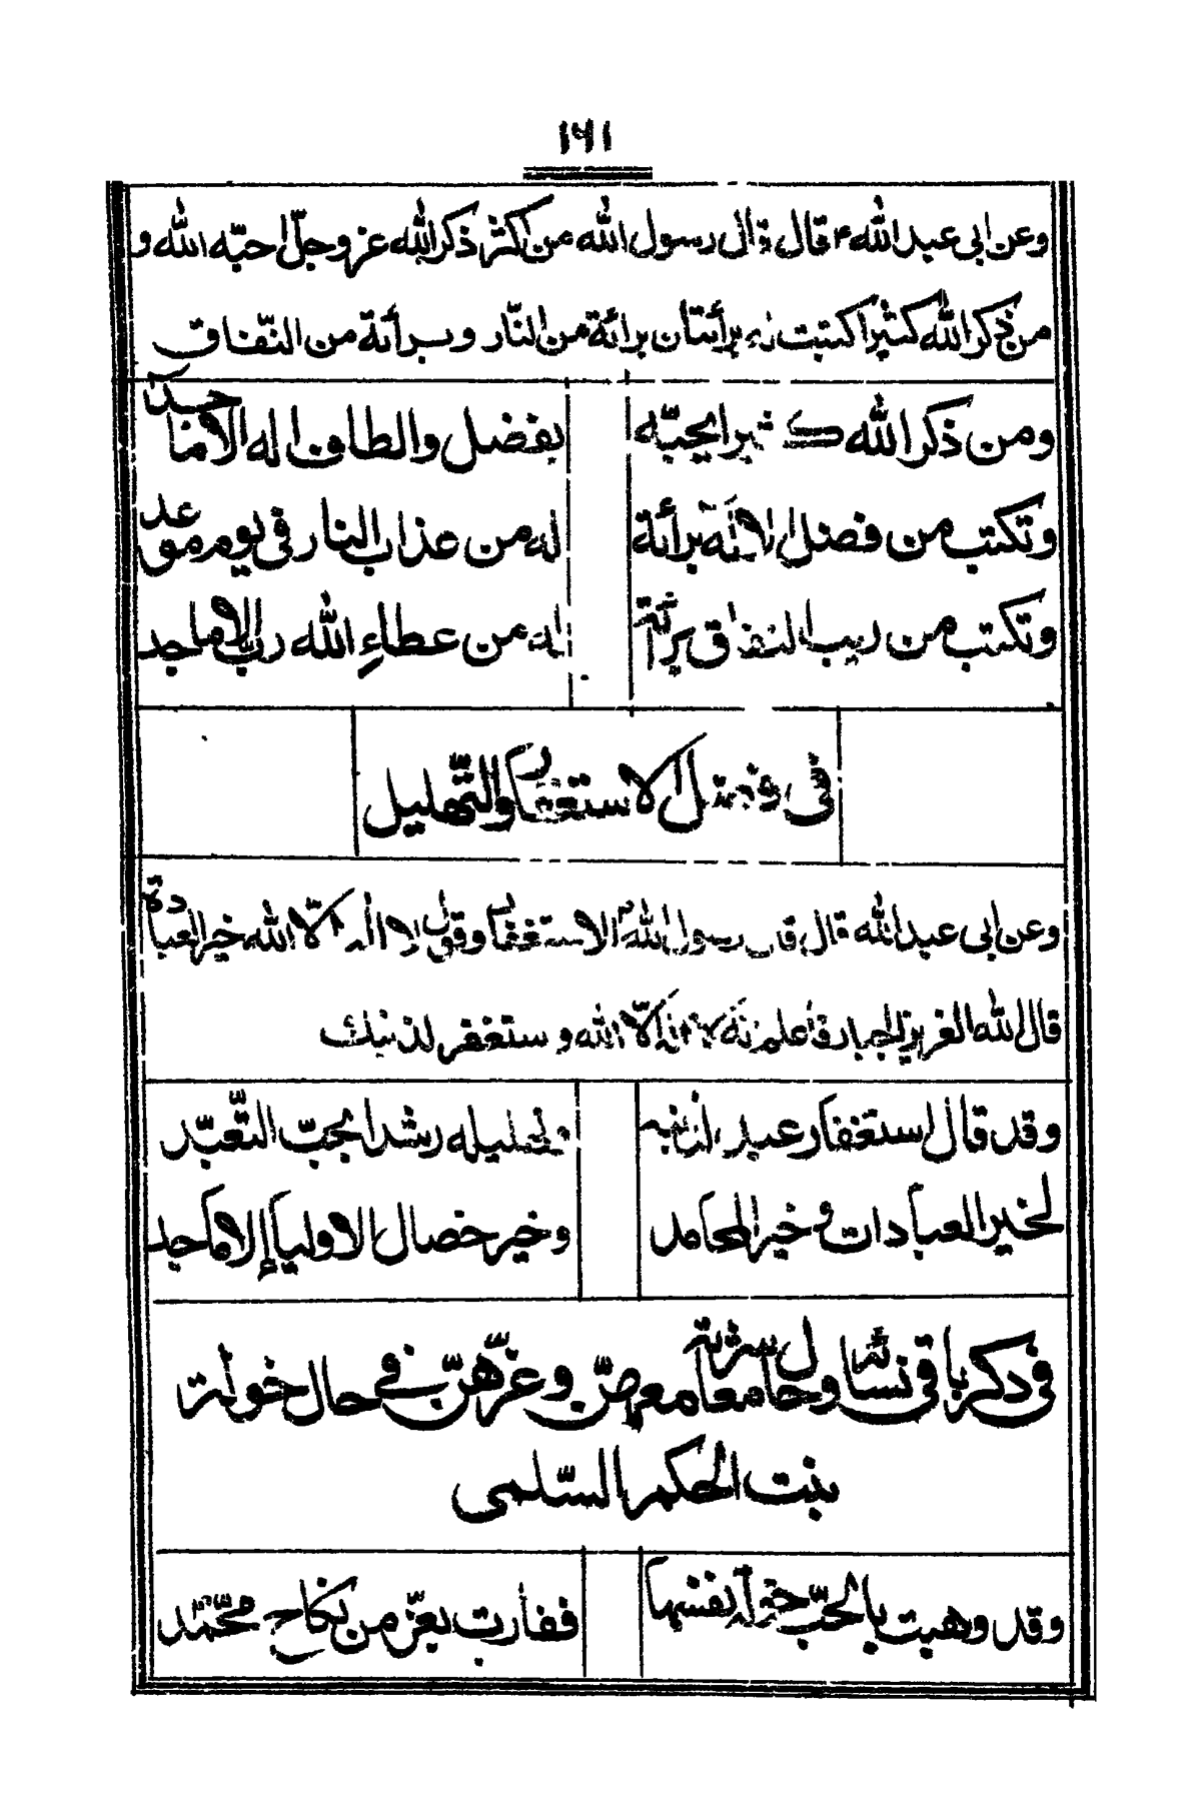 ١٦١
وعن ابى عبد الله ع قال قال رسول الله من اكثر ذكر الله عز وجلّ احبّه الله و
من ذكر الله كثيرا كتبت له برأتان برائة من النّار وبرأئة من النّفاق
ومن ذكر الله كثيرا يحبّه بفضل والطاف اله الاماجد
وتكتب من فضل الاله برأئة له من عذاب النار في يوم موعد
وتكتب من ريب النفاق برأئة له من عطاءِ الله ربّ الاماجد
فى فضل الاستغفار والتّهليل
وعن ابى عبد الله قال قال رسول الله ص الاستغفار وقول لا اله الّا الله خير العبادة
قال الله العزيز الجبار فأعلم انّه لا اله الّا الله وستغفر لذنبك
وقد قال استغفار عبد لذنبه وتهليله رشدا بحبّ التّعبّد
لخير العبادات وخير المحامد وخير خصال الاولياء الاماجد
فى ذكر باقى نسائه وحال سرّيته معاً معهنّ وغيرهنّ فى حال خولة
بنت الحكم السّلمى
وقد وهبت بالحبّ خولة نفسها ففازت بعزّ من نكاح محمّد